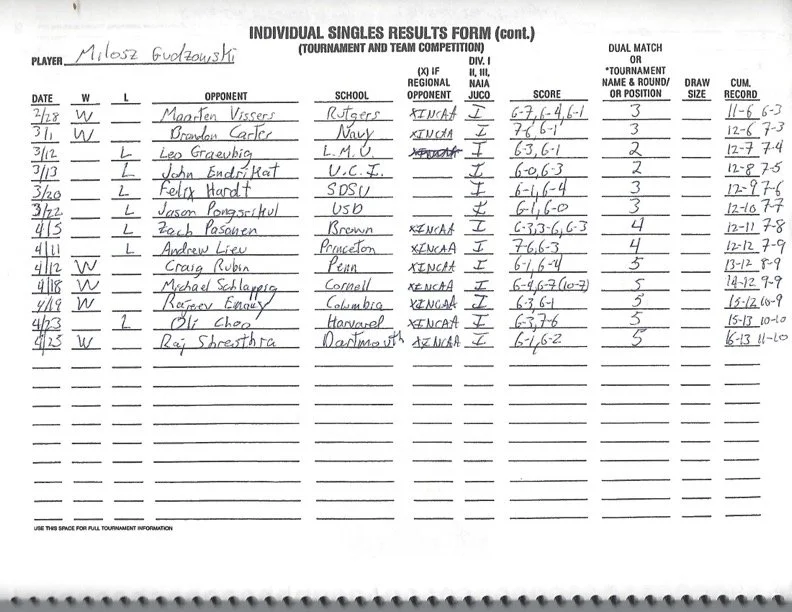 INDIVIDUAL SINGLES RESULTS FORM (cont.)
(TOURNAMENT AND TEAM COMPETITION)
PLAYER Milosz Gudzowski
DATE W L OPPONENT SCHOOL (X) IF REGIONAL OPPONENT DIV. I II, III, NAIA JUCO SCORE DUAL MATCH OR *TOURNAMENT NAME & ROUND/ OR POSITION DRAW SIZE CUM. RECORD
2/28 W Maarten Vissers Rutgers XINCAA I 6-7, 6-4, 6-1 3 11-6 6-3
3/1 W Brandon Carter Navy XINCAA I 7-6, 6-1 3 12-6 7-3
3/12 L Leo Graevbig L.M.U I 6-3, 6-1 2 12-7 7-4
3/13 L John Endrikat U.C.I. I 6-0, 6-3 2 12-8 7-5
3/20 L Felix Hardt SDSU I 6-1, 6-4 3 12-9 7-6
3/22 L Jason Pongsrikul USD I 6-1, 6-0 3 12-10 7-7
4/5 L Zach Pasanen Brown XINCAA I 6-3, 3-6, 6-3 4 12-11 7-8
4/11 L Andrew Lieu Princeton XINCAA I 7-6, 6-3 4 12-12 7-9
4/12 W Craig Rubin Penn XINCAA I 6-1, 6-4 5 13-12 8-9
4/18 W Michael Schlappig Cornell XINCAA I 6-4, 6-7 (10-7) 5 14-12 9-9
4/19 W Rajeev Columbia XINCAA I 6-3, 6-1 5 15-12 10-9
4/23 L Oli Choo Harvard XINCAA I 6-3, 7-6 5 15-13 10-10
4/25 W Raj Shresthra Dartmouth XINCAA I 6-1, 6-2 5 16-13 11-10
USE THIS SPACE FOR FULL TOURNAMENT INFORMATION